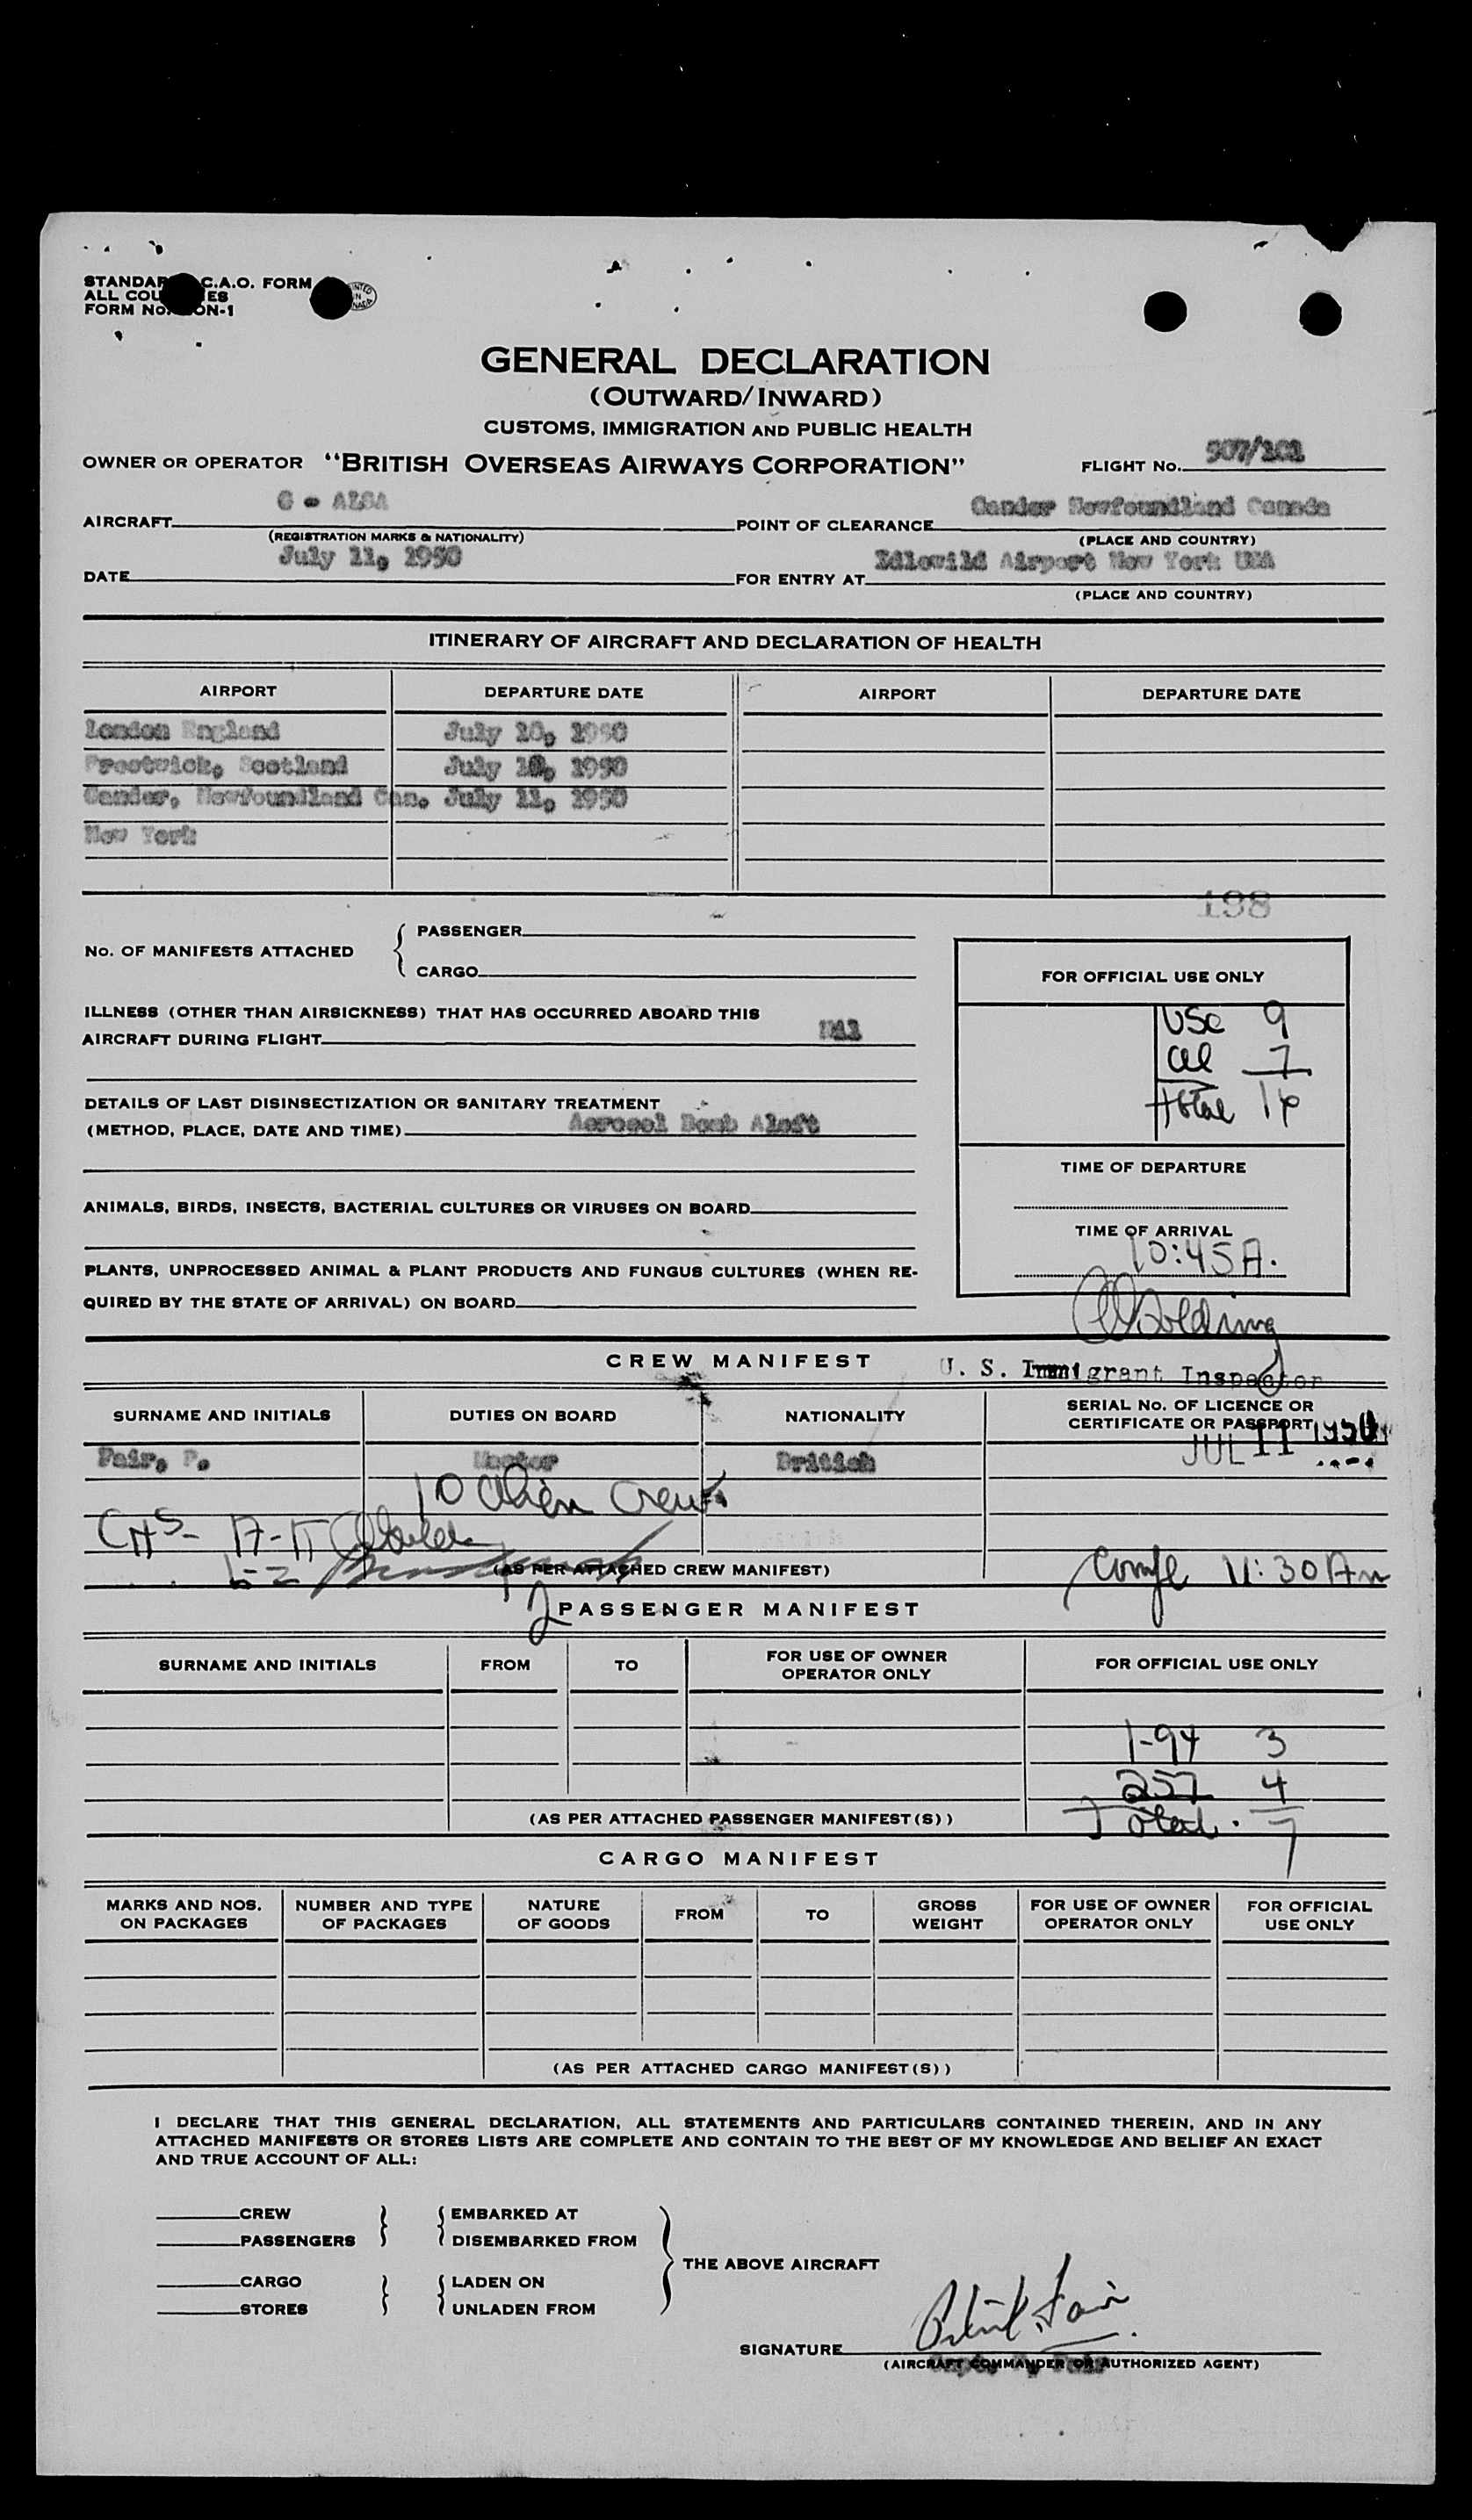 STANDAR C.A.O. FORM
ALL COU ES
FORM NO. ON-1
GENERAL DECLARATION
(OUTWARD/INWARD)
CUSTOMS, IMMIGRATION AND PUBLIC HEALTH
OWNER OR OPERATOR "BRITISH OVERSEAS AIRWAYS CORPORATION" FLIGHT No. 507/101
AIRCRAFT G - ALSA POINT OF CLEARANCE Gander Newfoundland Canada
(REGISTRATION MARKS & NATIONALITY) (PLACE AND COUNTRY)
DATE July 11, 1950 FOR ENTRY AT Idlewild Airport New York USA
(PLACE AND COUNTRY)
ITINERARY OF AIRCRAFT AND DECLARATION OF HEALTH
AIRPORT DEPARTURE DATE AIRPORT DEPARTURE DATE
London England July 10, 1950
Prestwick, Scotland July 10, 1950
Gander, Newfoundland Can. July 11, 1950
New York
198
No. OF MANIFESTS ATTACHED { PASSENGER
CARGO
FOR OFFICIAL USE ONLY
USC 9
al 7
total 16
ILLNESS (OTHER THAN AIRSICKNESS) THAT HAS OCCURRED ABOARD THIS
AIRCRAFT DURING FLIGHT Nil
DETAILS OF LAST DISINSECTIZATION OR SANITARY TREATMENT
(METHOD, PLACE, DATE AND TIME) Aerosol Bomb Aloft
TIME OF DEPARTURE
ANIMALS, BIRDS, INSECTS, BACTERIAL CULTURES OR VIRUSES ON BOARD
TIME OF ARRIVAL
10:45A.
PLANTS, UNPROCESSED ANIMAL & PLANT PRODUCTS AND FUNGUS CULTURES (WHEN RE-
QUIRED BY THE STATE OF ARRIVAL) ON BOARD
CREW MANIFEST U. S. Immigrant Inspector
SURNAME AND INITIALS DUTIES ON BOARD NATIONALITY SERIAL No. OF LICENCE OR
CERTIFICATE OR PASSPORT
JUL 11 1950
Fair, P. Master British
10 alien crew
(AS PER ATTACHED CREW MANIFEST)
Compl 11:30 Am
2 PASSENGER MANIFEST
SURNAME AND INITIALS FROM TO FOR USE OF OWNER
OPERATOR ONLY FOR OFFICIAL USE ONLY
1-94 3
257 4
Total. 7
(AS PER ATTACHED PASSENGER MANIFEST(S))
CARGO MANIFEST
MARKS AND NOS.
ON PACKAGES NUMBER AND TYPE
OF PACKAGES NATURE
OF GOODS FROM TO GROSS
WEIGHT FOR USE OF OWNER
OPERATOR ONLY FOR OFFICIAL
USE ONLY
(AS PER ATTACHED CARGO MANIFEST(S))
I DECLARE THAT THIS GENERAL DECLARATION, ALL STATEMENTS AND PARTICULARS CONTAINED THEREIN, AND IN ANY
ATTACHED MANIFESTS OR STORES LISTS ARE COMPLETE AND CONTAIN TO THE BEST OF MY KNOWLEDGE AND BELIEF AN EXACT
AND TRUE ACCOUNT OF ALL:
CREW EMBARKED AT
PASSENGERS DISEMBARKED FROM
THE ABOVE AIRCRAFT
CARGO LADEN ON
STORES UNLADEN FROM
SIGNATURE
(AIRCRAFT COMMANDER OR AUTHORIZED AGENT)